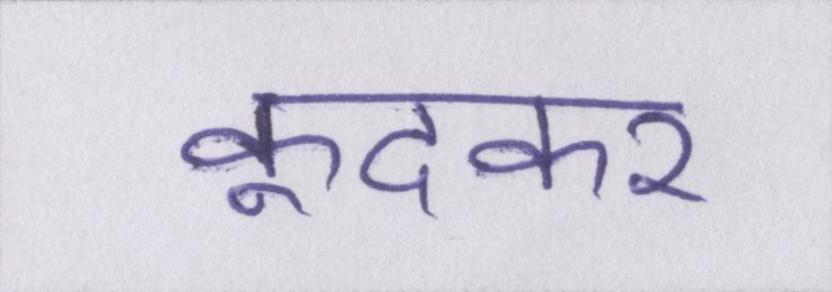 कूदकर